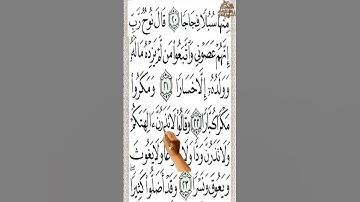 مِنْهَا سُبُلًا فِجَاجًا ٢٠ قَالَ نُوحٌ رَّبِّ
إِنَّهُمْ عَصَوْنِي وَاتَّبَعُوا مَن لَّمْ يَزِدْهُ مَالُهُ
وَوَلَدُهُ إِلَّا خَسَارًا ٢١ وَمَكَرُوا
مَكْرًا كُبَّارًا ٢٢ وَقَالُوا لَا تَذَرُنَّ ءَالِهَتَكُمْ
وَلَا تَذَرُنَّ وَدًّا وَلَا وَلَا يَغُوثَ
وَيَعُوقَ وَنَسْرًا ٢٣ وَقَدْ أَضَلُّوا كَثِيرًا